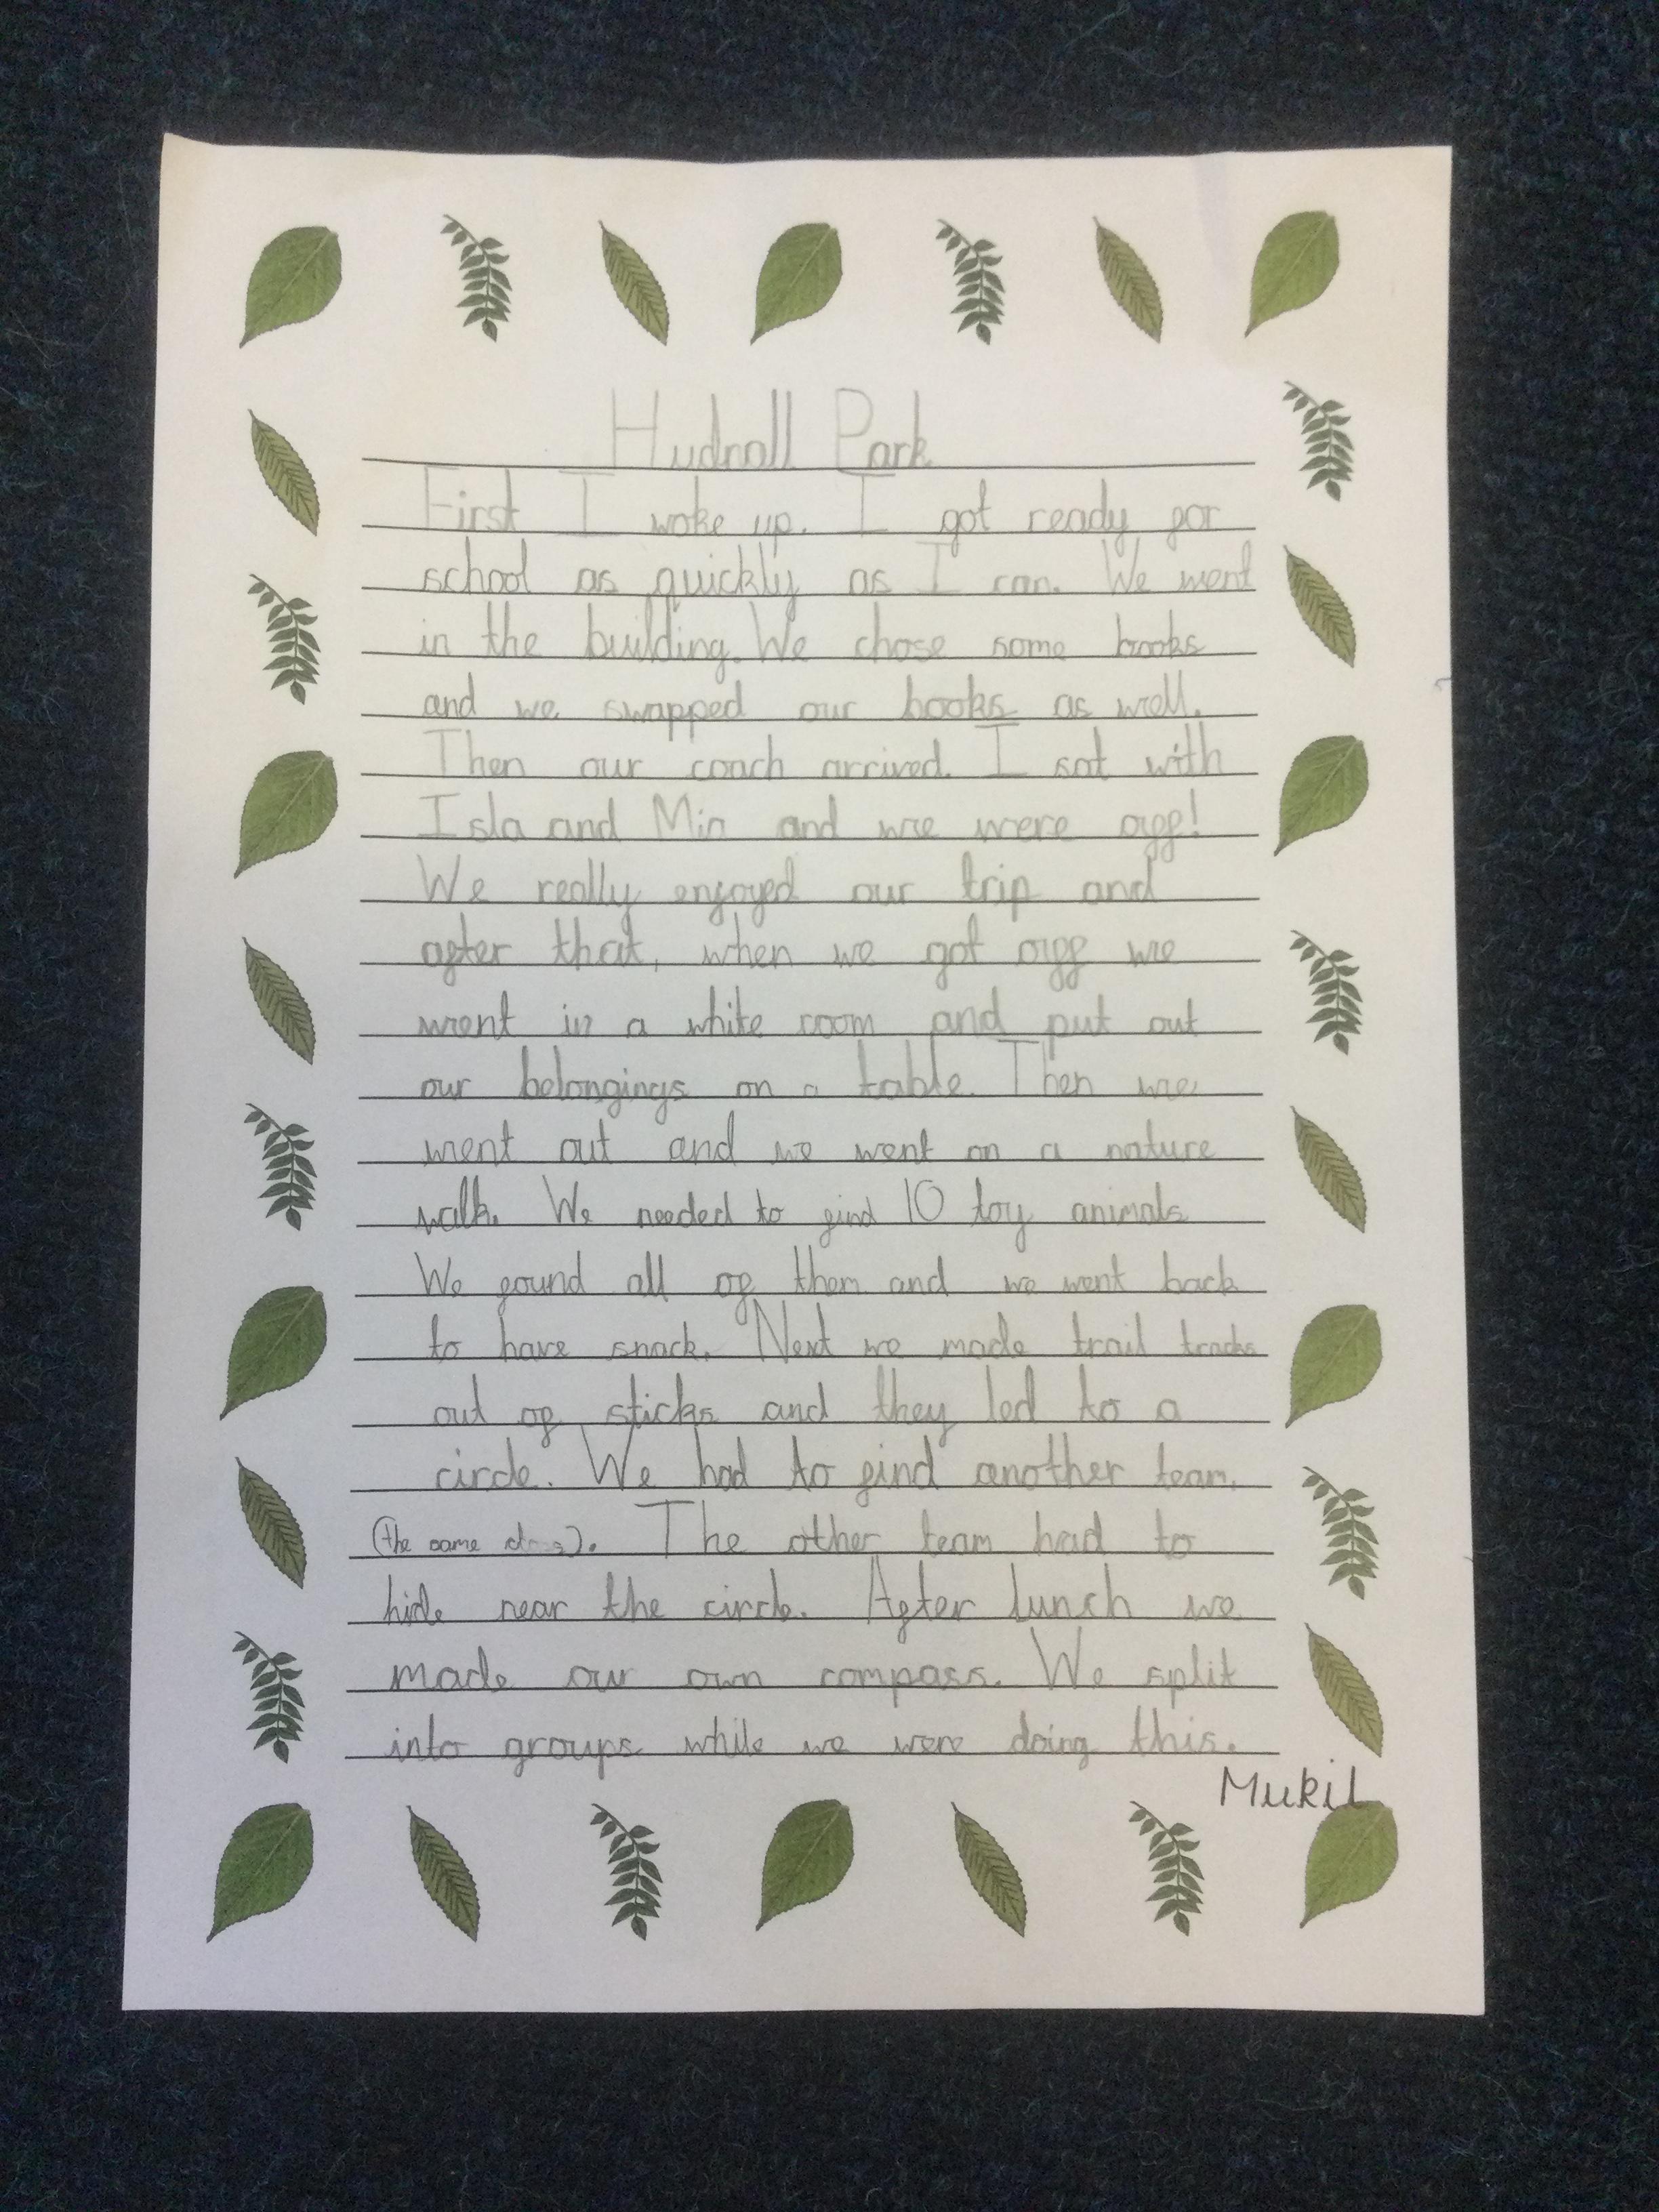 Hudnall Park
First I woke up. I got ready for
school as quickly as I can. We went
in the building. We chose some books
and we swapped our books as well.
Then our coach arrived. I sat with
Isla and Mia and we were off!
We really enjoyed our trip and
after that, when we got off we
went in a white room and put out
our belongings on a table. Then we
went out and we went on a nature
walk. We needed to find 10 toy animals
We found all of them and we went back
to have snack. Next we made trail tracks
out of sticks and they led to a
circle. We had to find another team.
(the same class). The other team had to
hide near the circle. After lunch we
made our own compass. We split
into groups while we were doing this.
Mukil